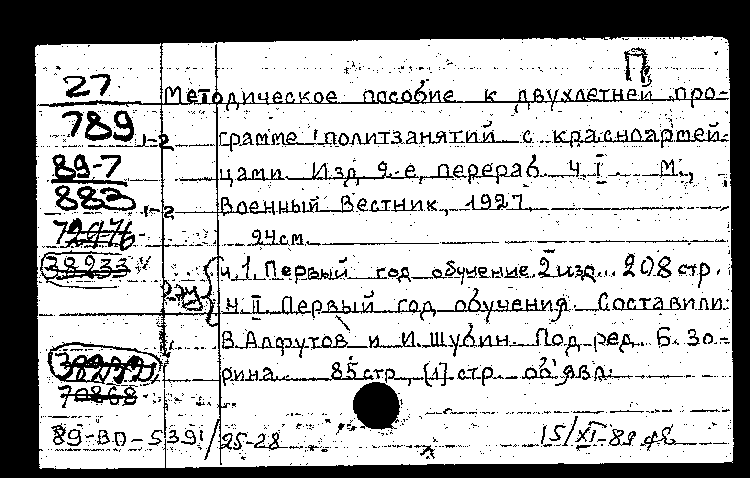 П
27
789 1-2
89-7
883 1-2
72976
38233
70868
Методическое пособие к двухлетней про-
грамме политзанятий с красноармей-
цами. Изд. 2-е, перераб. Ч. I. М.,
Военный Вестник, 1927.
24см.
ч. 1. Первый год обучение. 2 изд... 208 стр.
ч. II. Первый год обучения. Составили:
В. Алфутов и И. Шубин. Под ред. Б. Зо-
рина. 85 стр., [1] стр. об'явл.
89-ВО-5391/25-28
15/XI-89